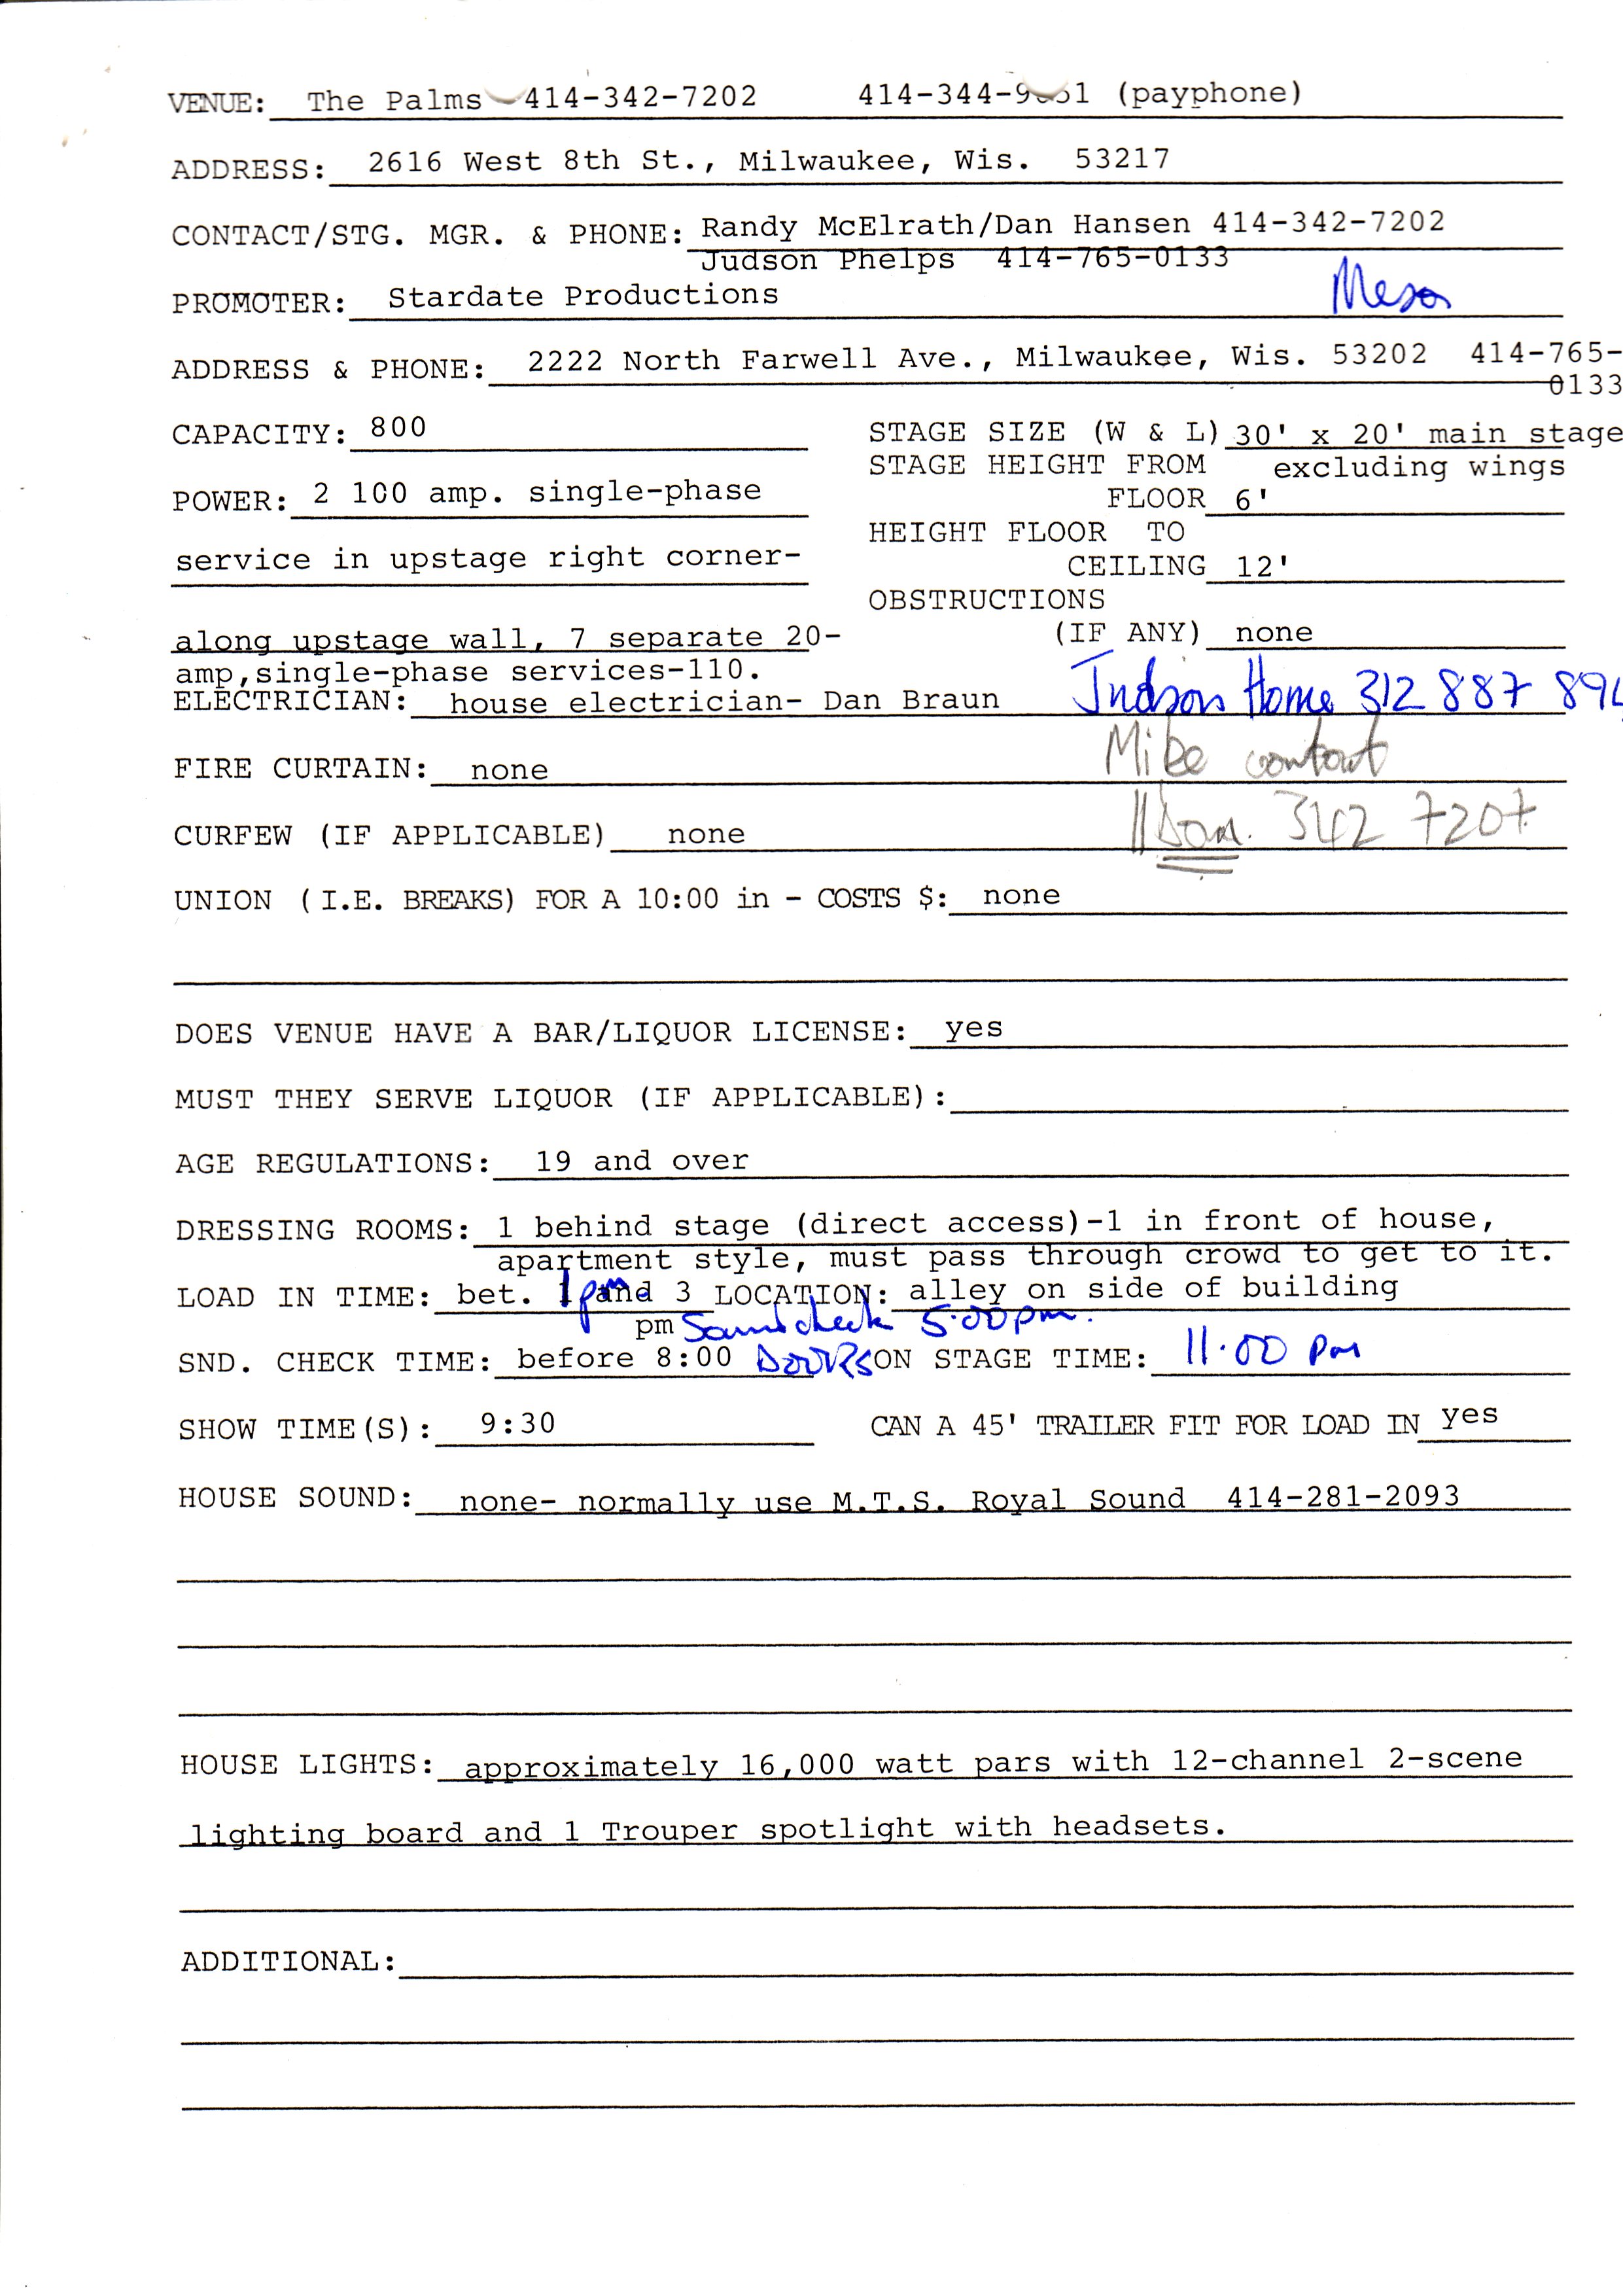 VENUE: The Palms 414-342-7202 414-344-9 51 (payphone)
ADDRESS: 2616 West 8th St., Milwaukee, Wis. 53217
CONTACT/STG. MGR. & PHONE: Randy McElrath/Dan Hansen 414-342-7202
Judson Phelps 414-765-0133
PROMOTER: Stardate Productions
ADDRESS & PHONE: 2222 North Farwell Ave., Milwaukee, Wis. 53202 414-765-
0133
CAPACITY: 800
STAGE SIZE (W & L) 30' x 20' main stage
STAGE HEIGHT FROM excluding wings
FLOOR 6'
POWER: 2 100 amp. single-phase
HEIGHT FLOOR TO
service in upstage right corner-
CEILING 12'
OBSTRUCTIONS
along upstage wall, 7 separate 20-
(IF ANY) none
amp,single-phase services-110.
ELECTRICIAN: house electrician- Dan Braun
Judson Home 312 887 89
FIRE CURTAIN: none
Mike contact
CURFEW (IF APPLICABLE) none
11am. 342 7207
UNION (I.E. BREAKS) FOR A 10:00 in - COSTS $: none
DOES VENUE HAVE A BAR/LIQUOR LICENSE: yes
MUST THEY SERVE LIQUOR (IF APPLICABLE):
AGE REGULATIONS: 19 and over
DRESSING ROOMS: 1 behind stage (direct access)-1 in front of house,
apartment style, must pass through crowd to get to it.
LOAD IN TIME: bet. 1pm and 3 LOCATION: alley on side of building
pm Soundcheck 5.00pm.
SND. CHECK TIME: before 8:00 DOORS ON STAGE TIME: 11.00 pm
SHOW TIME(S): 9:30 CAN A 45' TRAILER FIT FOR LOAD IN yes
HOUSE SOUND: none- normally use M.T.S. Royal Sound 414-281-2093
HOUSE LIGHTS: approximately 16,000 watt pars with 12-channel 2-scene
lighting board and 1 Trouper spotlight with headsets.
ADDITIONAL: